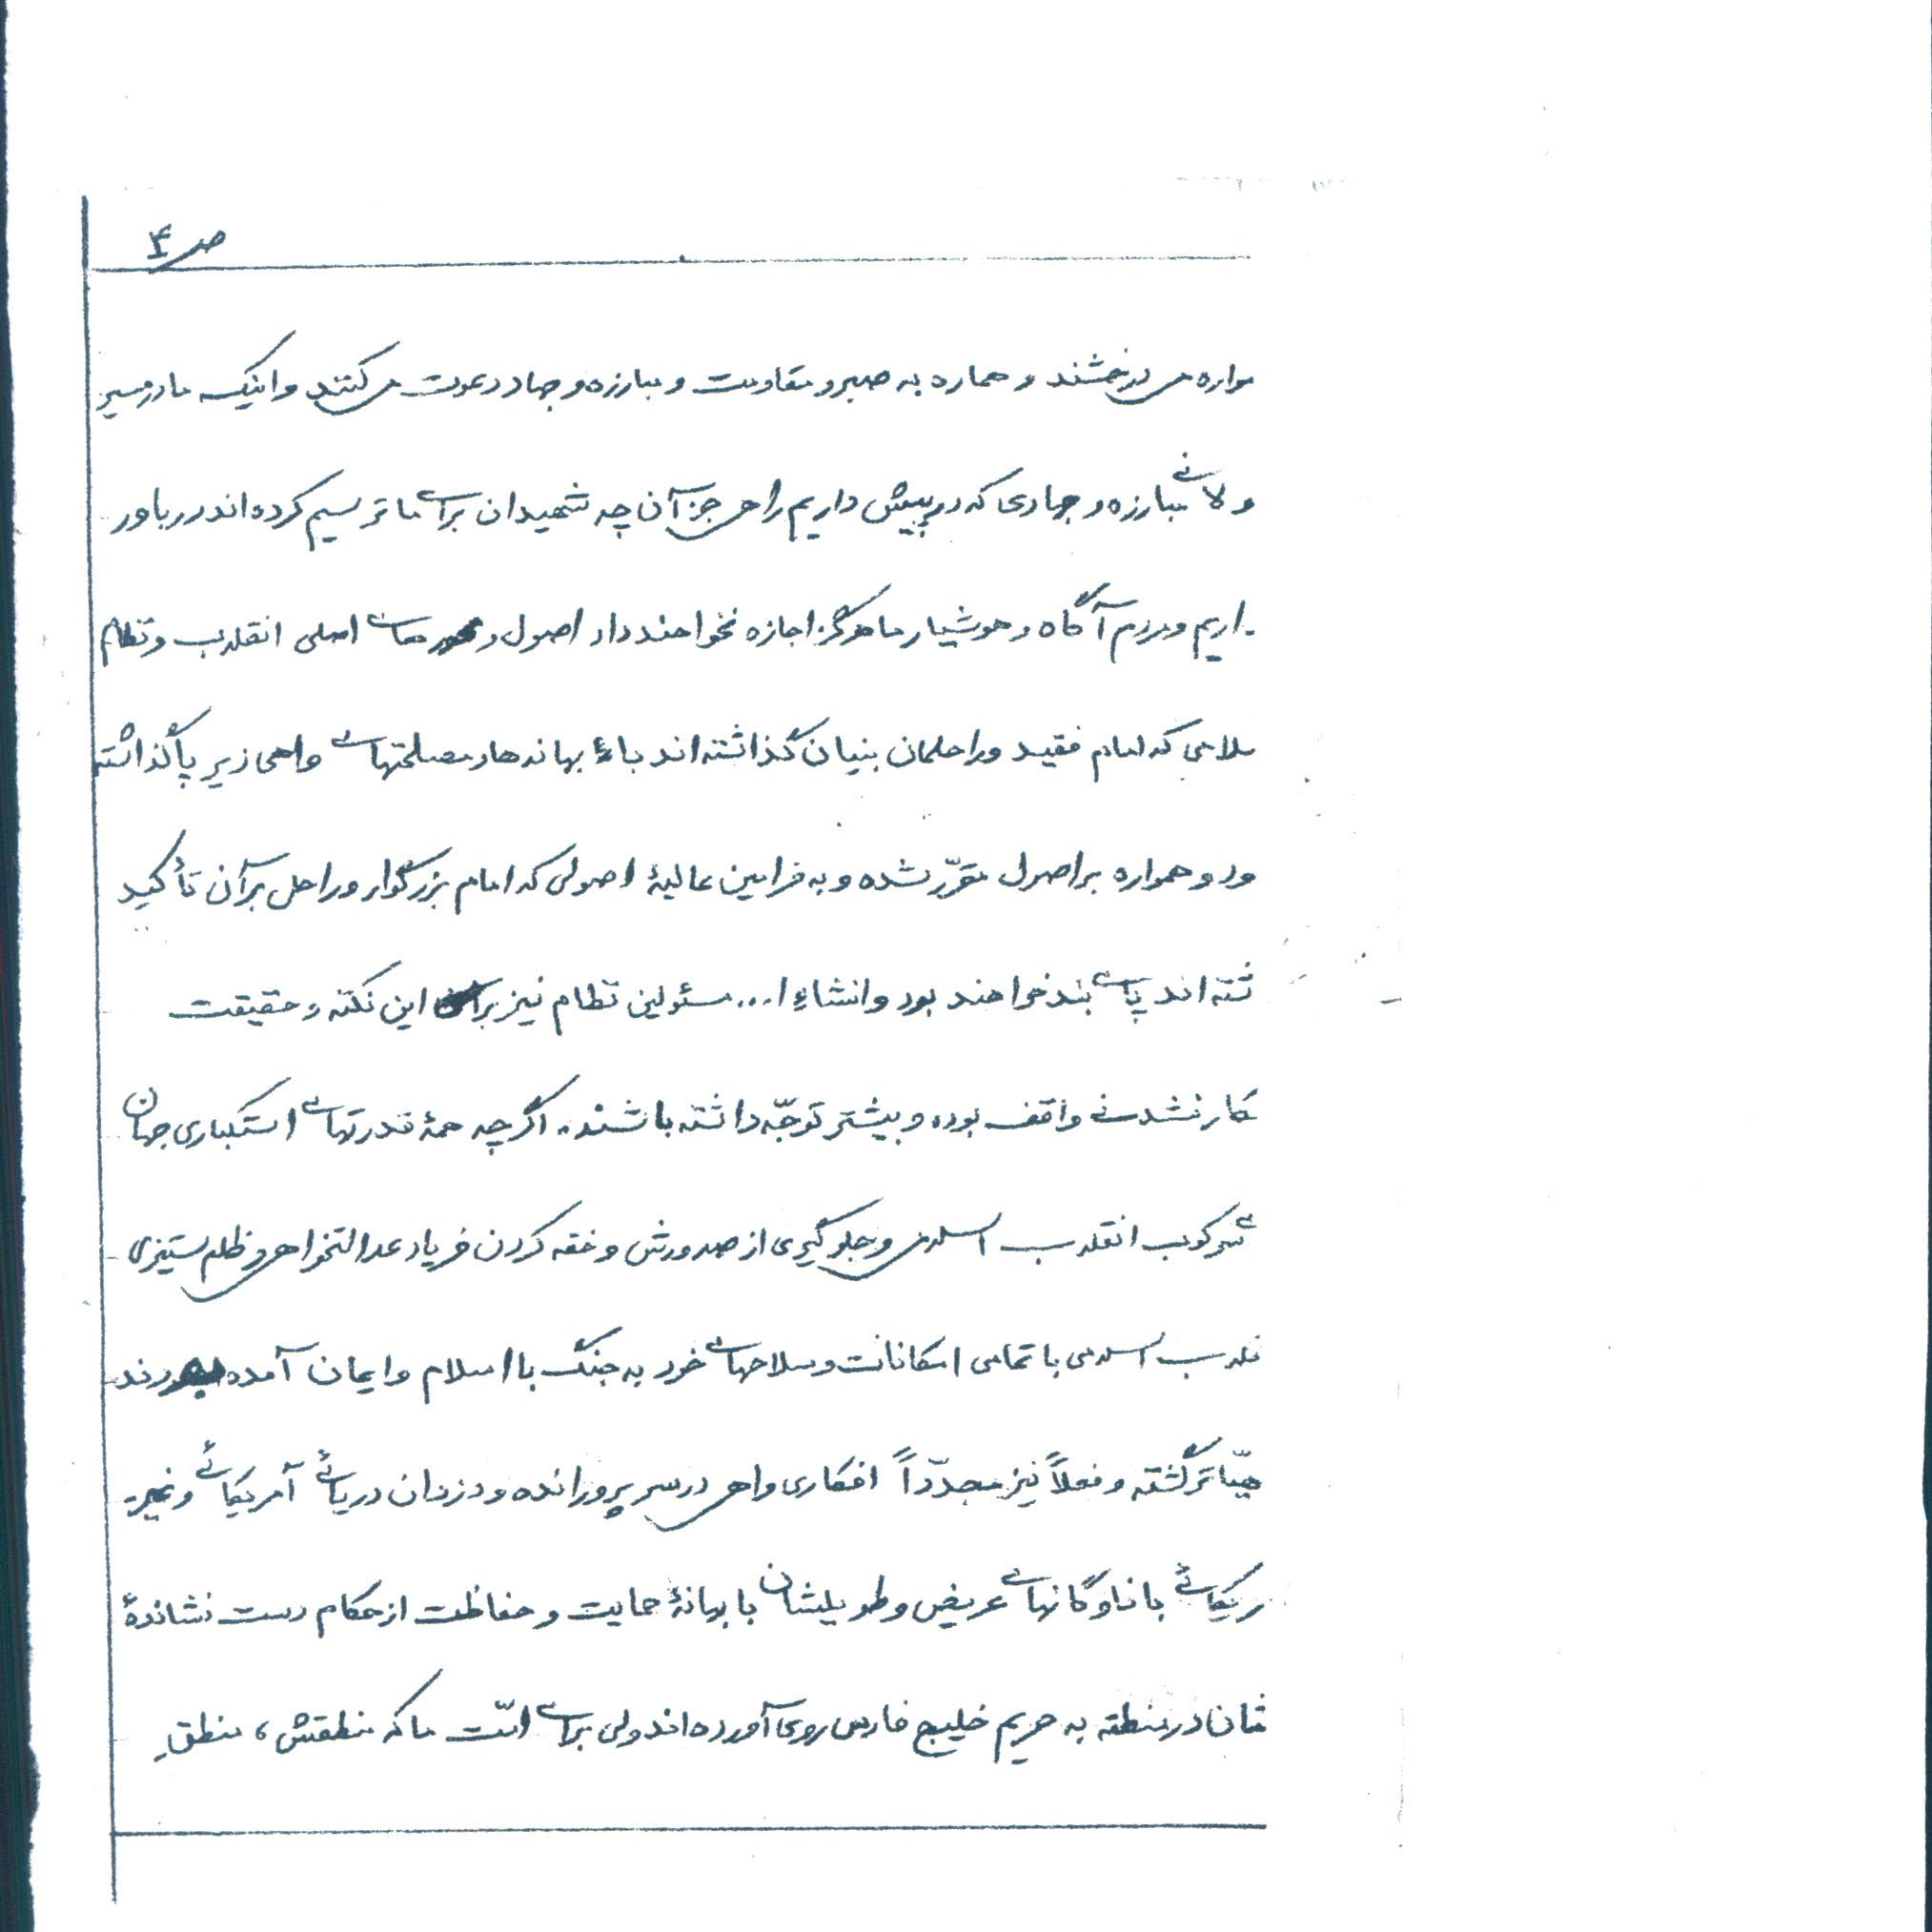 ص ۴
مواره می درخشند و هماره به صبر و مقاومت و مبارزه و جهاد دعوت می کنند و اینک ما در مسیر
ولانی مبارزه و جهادی که در پیش داریم راهی جز آن چه شهیدان برای ما ترسیم کرده اند در باور
داریم و مردم آگاه و هوشیار ما هرگز اجازه نخواهند داد اصول و های اصلی انقلاب و نظام
سلامی که امام فقید و راحلمان بنیان گذاشته اند با بهانه ها و مصلحتهای واهی زیر پا گذاشته
ود و همواره بر اصول مقرّر شده و به فرامین عالیهٔ اصولی که امام بزرگوار و راحل بر آن تأکید
شته اند پای بند خواهند بود و انشاءا... مسئولین نظام نیز بر این نکته و حقیقت
کار نشدنی واقف بوده و بیشتر توجّه داشته باشند. اگر چه همهٔ قدرتهای استکباری جهان
ی سرکوب انقلاب اسلامی و جلوگیری از صدورش و خفه کردن فریاد عدالتخواهی و ظلم ستیزی
قلاب اسلامی با تمامی امکانات و سلاحهای خود به جنگ با اسلام و ایمان آمده بودند
هیّاتر گشته و فعلاً نیز مجدّداً افکاری واهی در سر پرورانده و دزدان دریائی آمریکائی و غیر
ریکائی با ناوگانهای عریض و طویلشان با بهانهٔ حمایت و حفاظت از حکام دست نشاندهٔ
شان در منطقه به حریم خلیج فارس روی آورده اند ولی برای امّت ما که منطقش، منطقِ